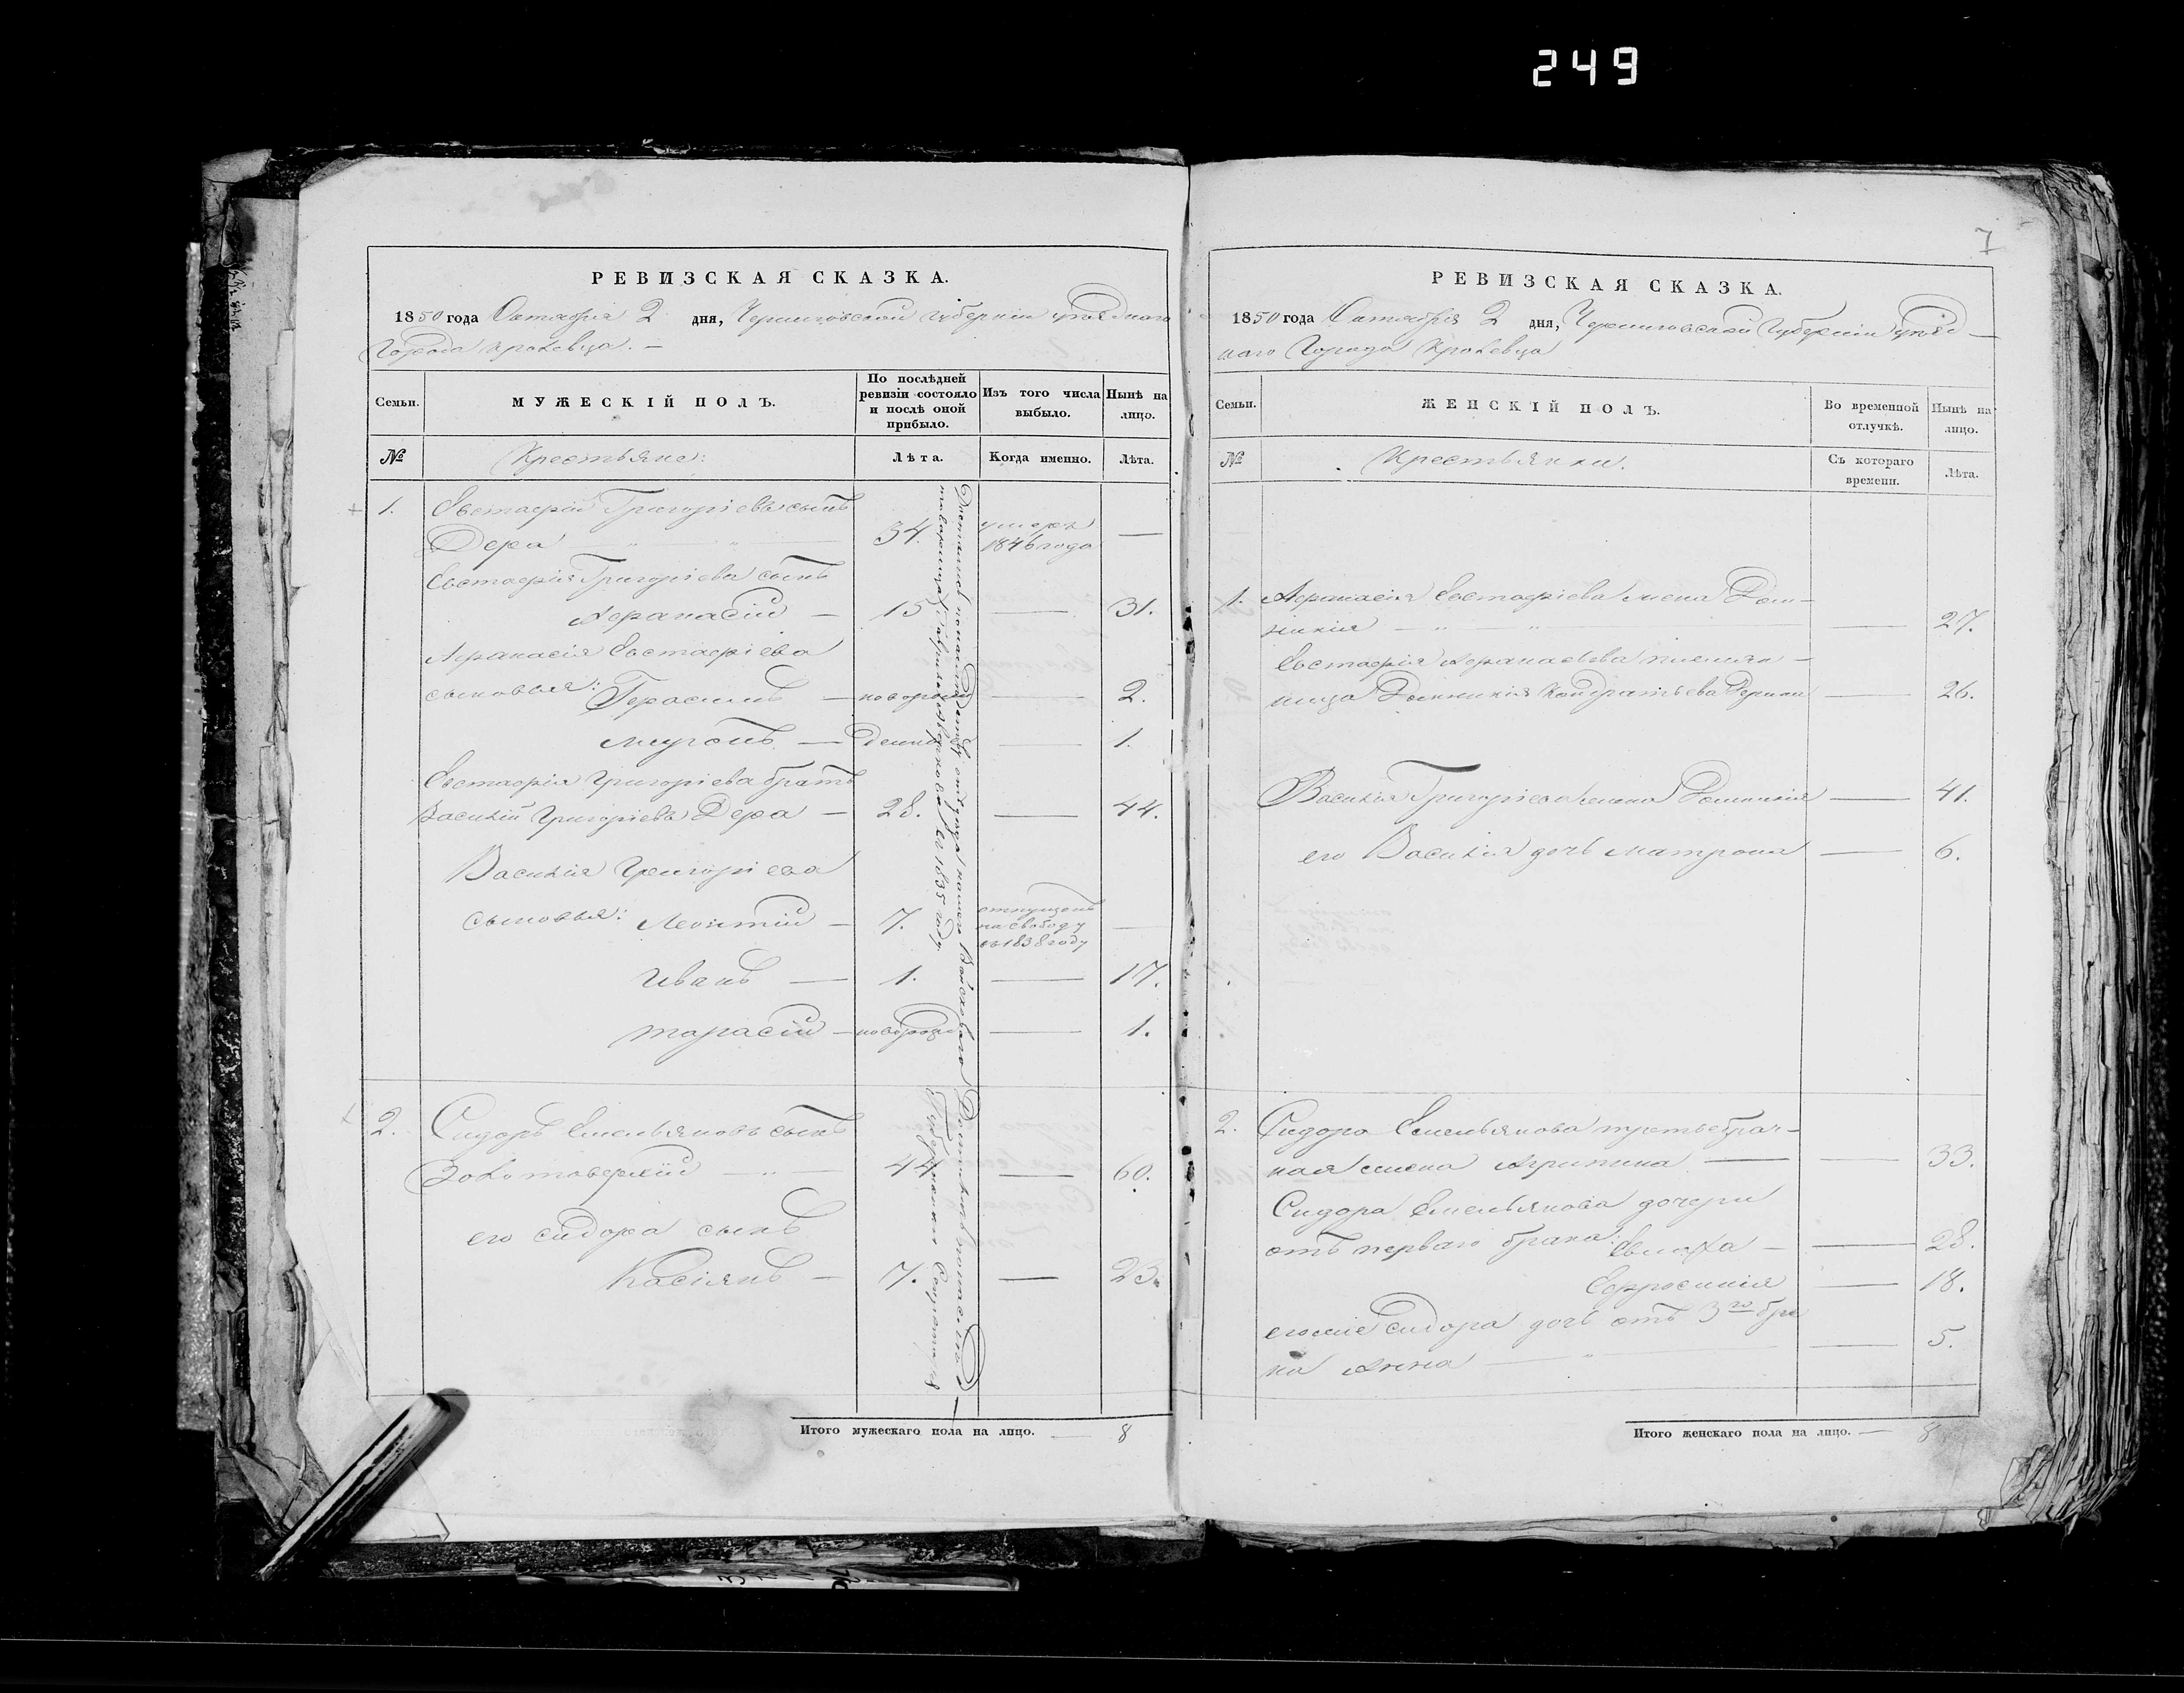 249
РЕВИЗСКАЯ СКАЗКА.
1850 года Октября 2 дня, Черниговской губернии уѣзднаго
Города Кролевца. —
Семьи.
МУЖЕСКІЙ ПОЛЪ.
По послѣдней
ревизіи состояло
и послѣ оной
прибыло.
Изъ того числа
выбыло.
Нынѣ на
лицо.
№
Крестьяне:
Лѣта.
Когда именно.
Лѣта.
1. Евстафій Григорьевъ сынъ
Дера 34. умеръ
1846 года —
Евстафія Григоріева сынъ
Афанасій — 15 — 31.
Афанасія Евстафіева
сыновья: Герасимъ — новорож — 2.
Миронъ — денны — 1.
Евстафія Григоріева братъ
Василій Григоріевъ Дера — 28. — 44.
Василія Григоріева
сыновья: Леонтій — 7. отпущенъ
на свободу
въ 1838 году —
Иванъ — 1. — 17.
Тарасій — новорожде — 1.
2. Сидоръ Емельяновъ сынъ
Золотоверхій — 44 — 60.
его Сидора сынъ
Касіянъ — 7. — 23.
въ 1835 году
Итого мужескаго пола на лицо. — 8
7
РЕВИЗСКАЯ СКАЗКА.
1850 года Октября 2 дня, Черниговской Губерніи уѣзд-
наго Города Кролевца
Семьи.
ЖЕНСКІЙ ПОЛЪ.
Во временной
отлучкѣ.
Нынѣ на
лицо.
№
Крестьянки.
Съ котораго
времени.
Лѣта.
1. Афанасія Евстафіева жена Дом-
никія — 27.
Евстафія Афанасьева племян-
ница Домникія Кондратьева — 26.
Василія Григоріева жена Домникія — 41.
его Василія дочь Матрона — 6.
2. Сидора Емельянова третьебрач-
ная жена Агрипина — 33.
Сидора Емельянова дочери
отъ перваго брака: — 28.
Ефросинія — 18.
его же Сидора дочь отъ 3го бра
ка Анна — 5.
Итого женскаго пола на лицо. — 8